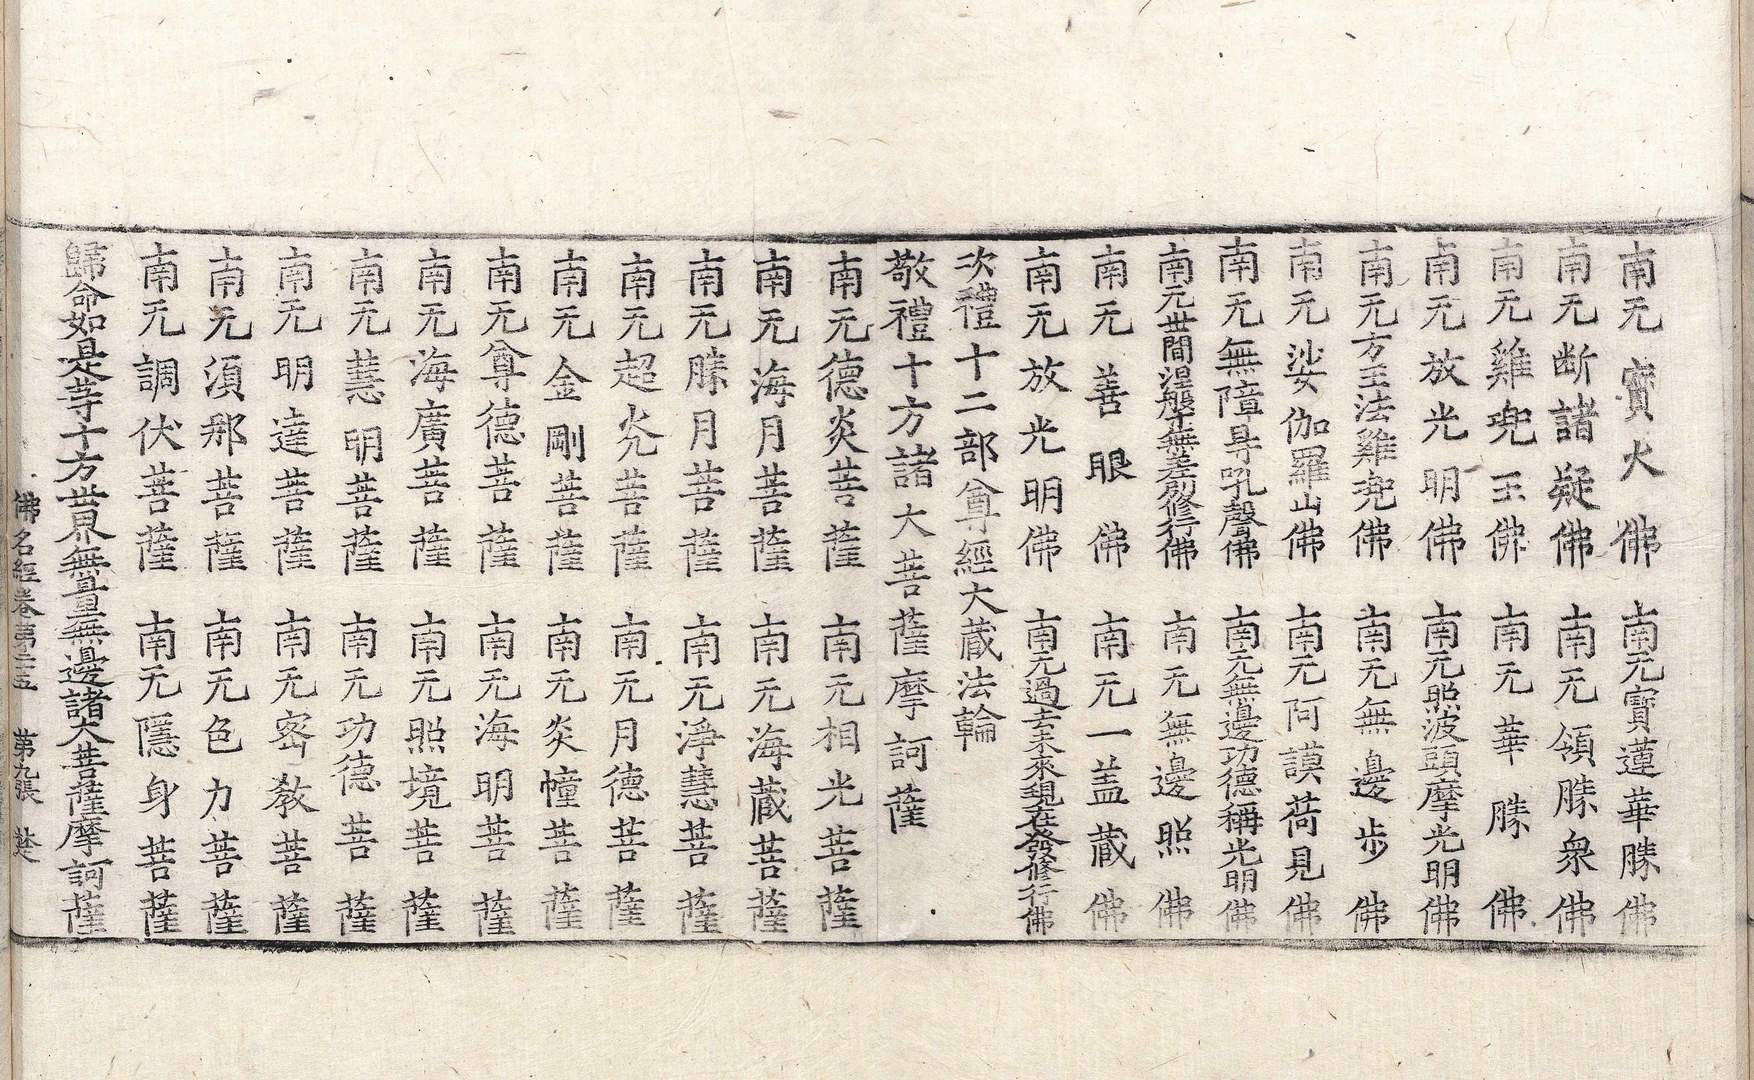 南无寶火佛　南无寶蓮華勝佛
南无断諸疑佛　南无領勝衆佛
南无雞兜王佛　南无華勝佛
南无放光明佛　南无照波頭摩光明佛
南无方王法雞兜佛　南无無邊步佛
南无娑伽羅山佛　南无阿謨荷見佛
南无無障㝵吼聲佛　南无無邊功德稱光明佛
南无世間涅槃無差別修行佛　南无無邊照佛
南无善眼佛　南无一盖藏佛
南无放光明佛　南无過去未來現在發修行佛
次禮十二部尊經大藏法輪
敬禮十方諸大菩薩摩訶薩
南无德炎菩薩　南无相光菩薩
南无海月菩薩　南无海藏菩薩
南无勝月菩薩　南无淨慧菩薩
南无超光菩薩　南无月德菩薩
南无金剛菩薩　南无炎幢菩薩
南无尊德菩薩　南无海明菩薩
南无海廣菩薩　南无照境菩薩
南无慧明菩薩　南无功德菩薩
南无明達菩薩　南无密教菩薩
南无須那菩薩　南无色力菩薩
南无調伏菩薩　南无隱身菩薩
歸命如是等十方世界無量無邊諸大菩薩摩訶薩
佛名經卷第二五　第九張　楚